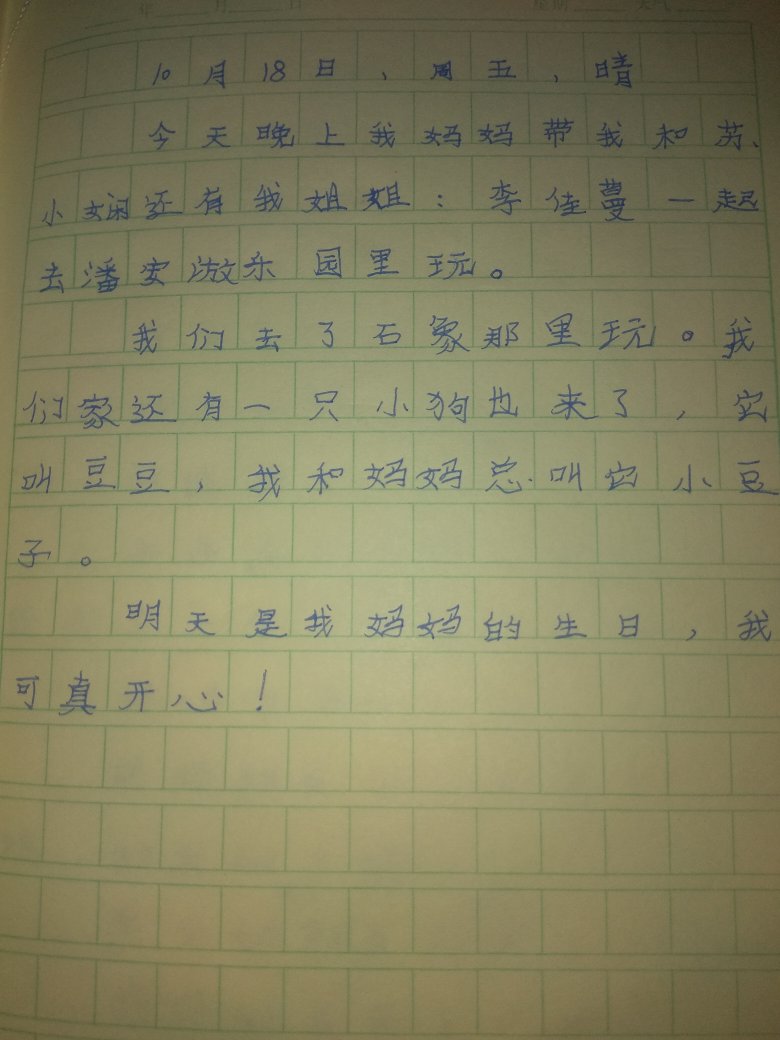 年 月 日 星期 天气
10月18日，周五，晴
今天晚上我妈妈带我和苏、
小娴还有我姐姐：李佳蔓一起
去潘安游乐园里玩。
我们去了石象那里玩。我
们家还有一只小狗也来了，它
叫豆豆，我和妈妈总叫它小豆
子。
明天是我妈妈的生日，我
可真开心！